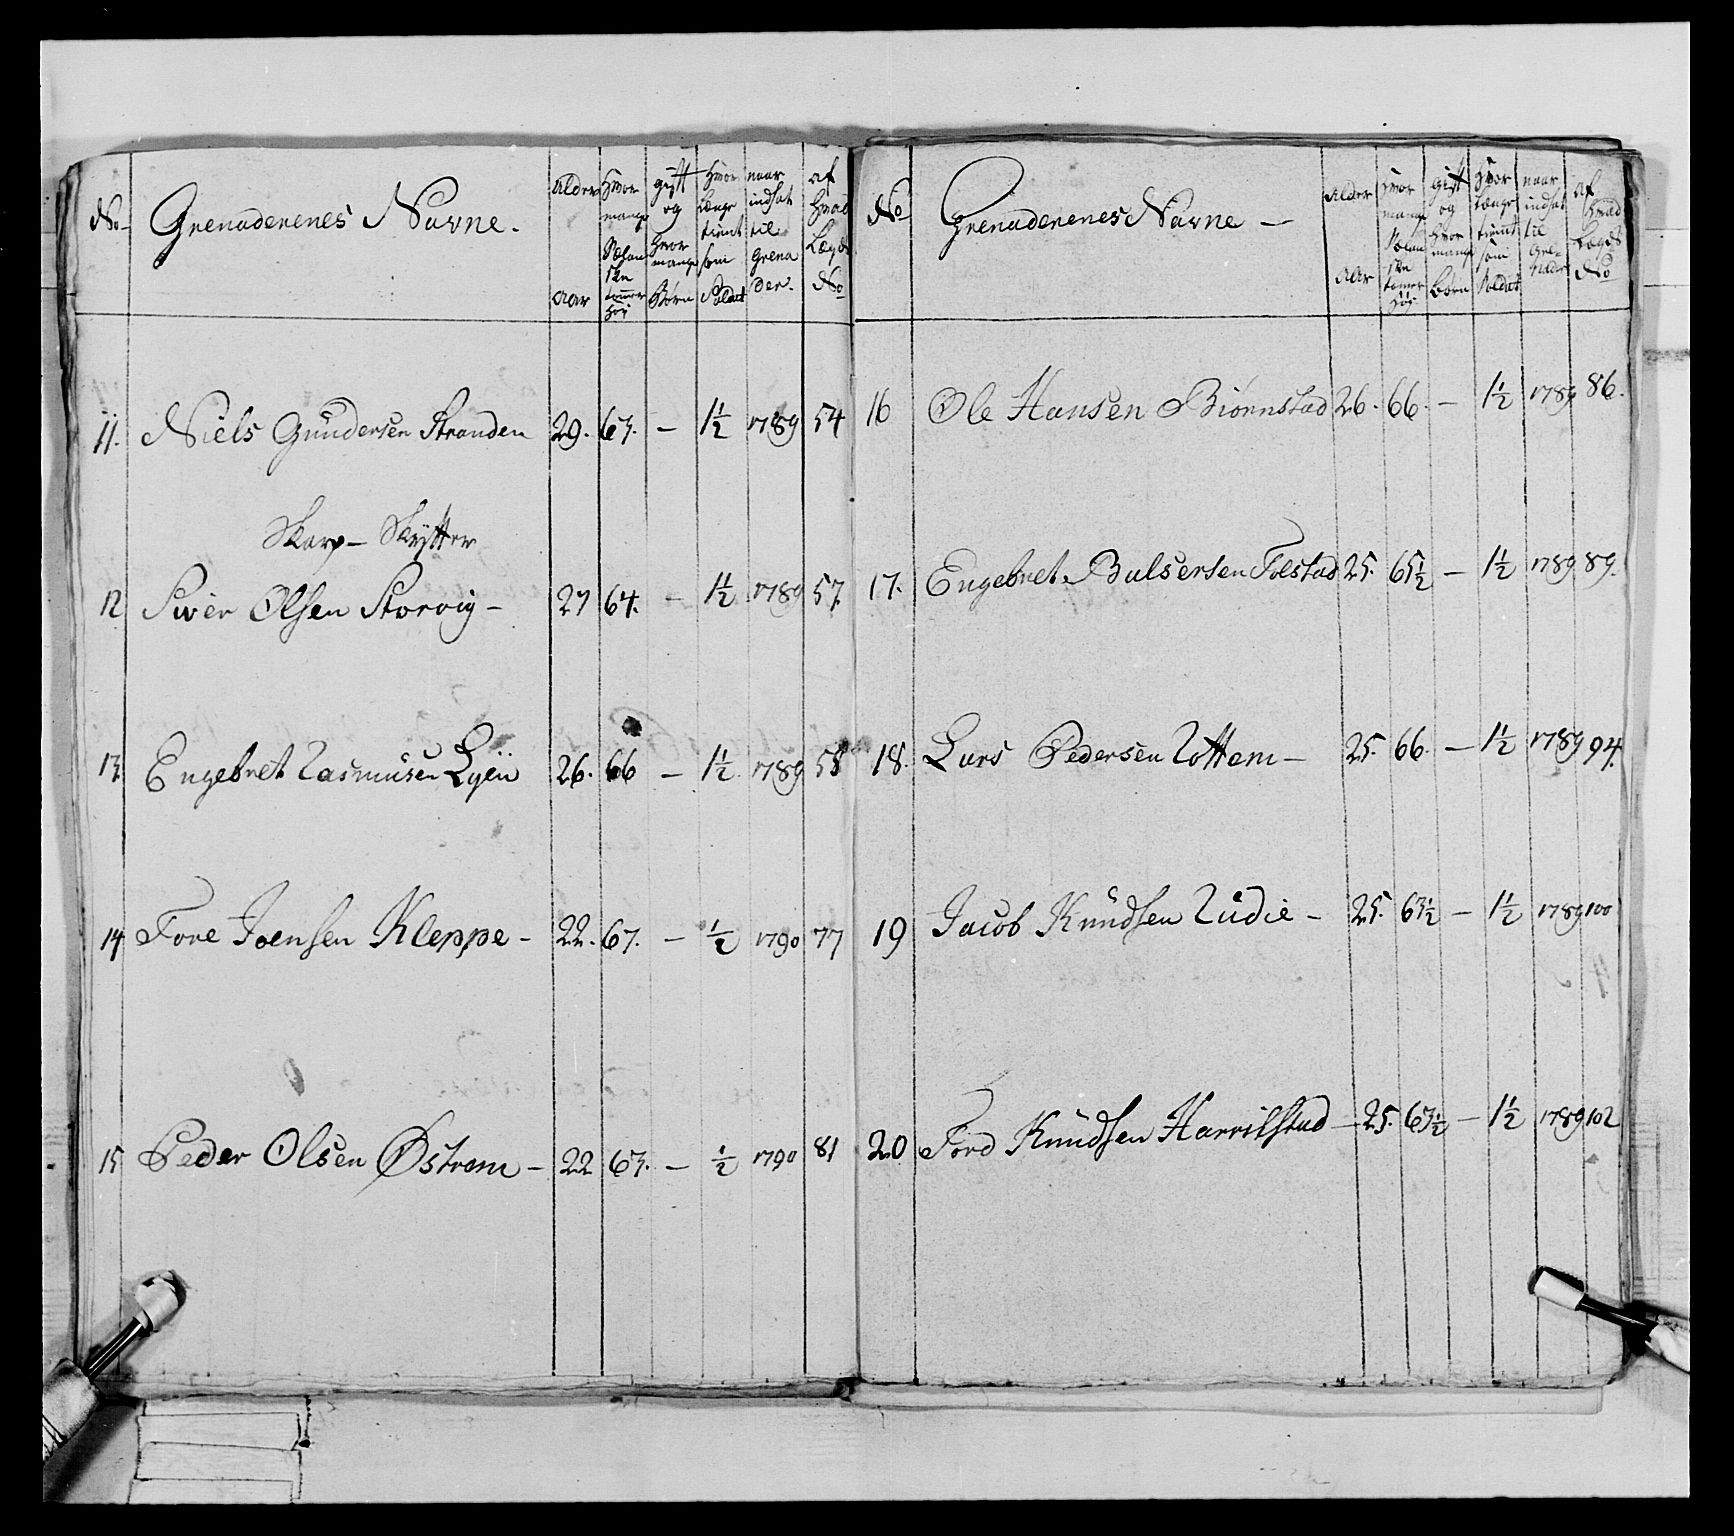 No Grenaderenes Navne. Alder Aar Hvor mange Sælan ske tommer høy gift og hvor mange Børn Hvor Længe tient som Soldat naar indsat til Grena der. af hvad Lægd No
11. Niels Gundersen Stranden 29. 63. - 1½ 1789 54
Skarp- Skytter
12 Siver Olsen Storvig - 27 64. - 1½ 1789 57.
13. Engebret Rasmusen 26. 66 - 1½ 1789 58
14 Tore Joensen Kleppe - 22. 67. - ½ 1790 77
15 Peder Olsen Østrem - 22 63. - ½ 1790 81
No Grenaderenes Navne - Alder Aar hvor mange Sælan ske tommer høy gift og hvor mange Børn Hvor Længe tient som Soldat naar indsat til Gre- nader af hvad Lægds No
16 Ole Hansen Biørnstad 26. 66. - 1½ 1789 86.
17. Engebret Balsersen Tolstad 25. 65½ - 1½ 1789 89.
18. Lars Pedersen Rottem - 25. 66. - 1½ 1789 94.
19 Jacob Knudsen Rudie - 25. 63½ - 1½ 1789 100
20 Tord Knudsen Harrilstad - 25. 63½ - 1½ 1789 102